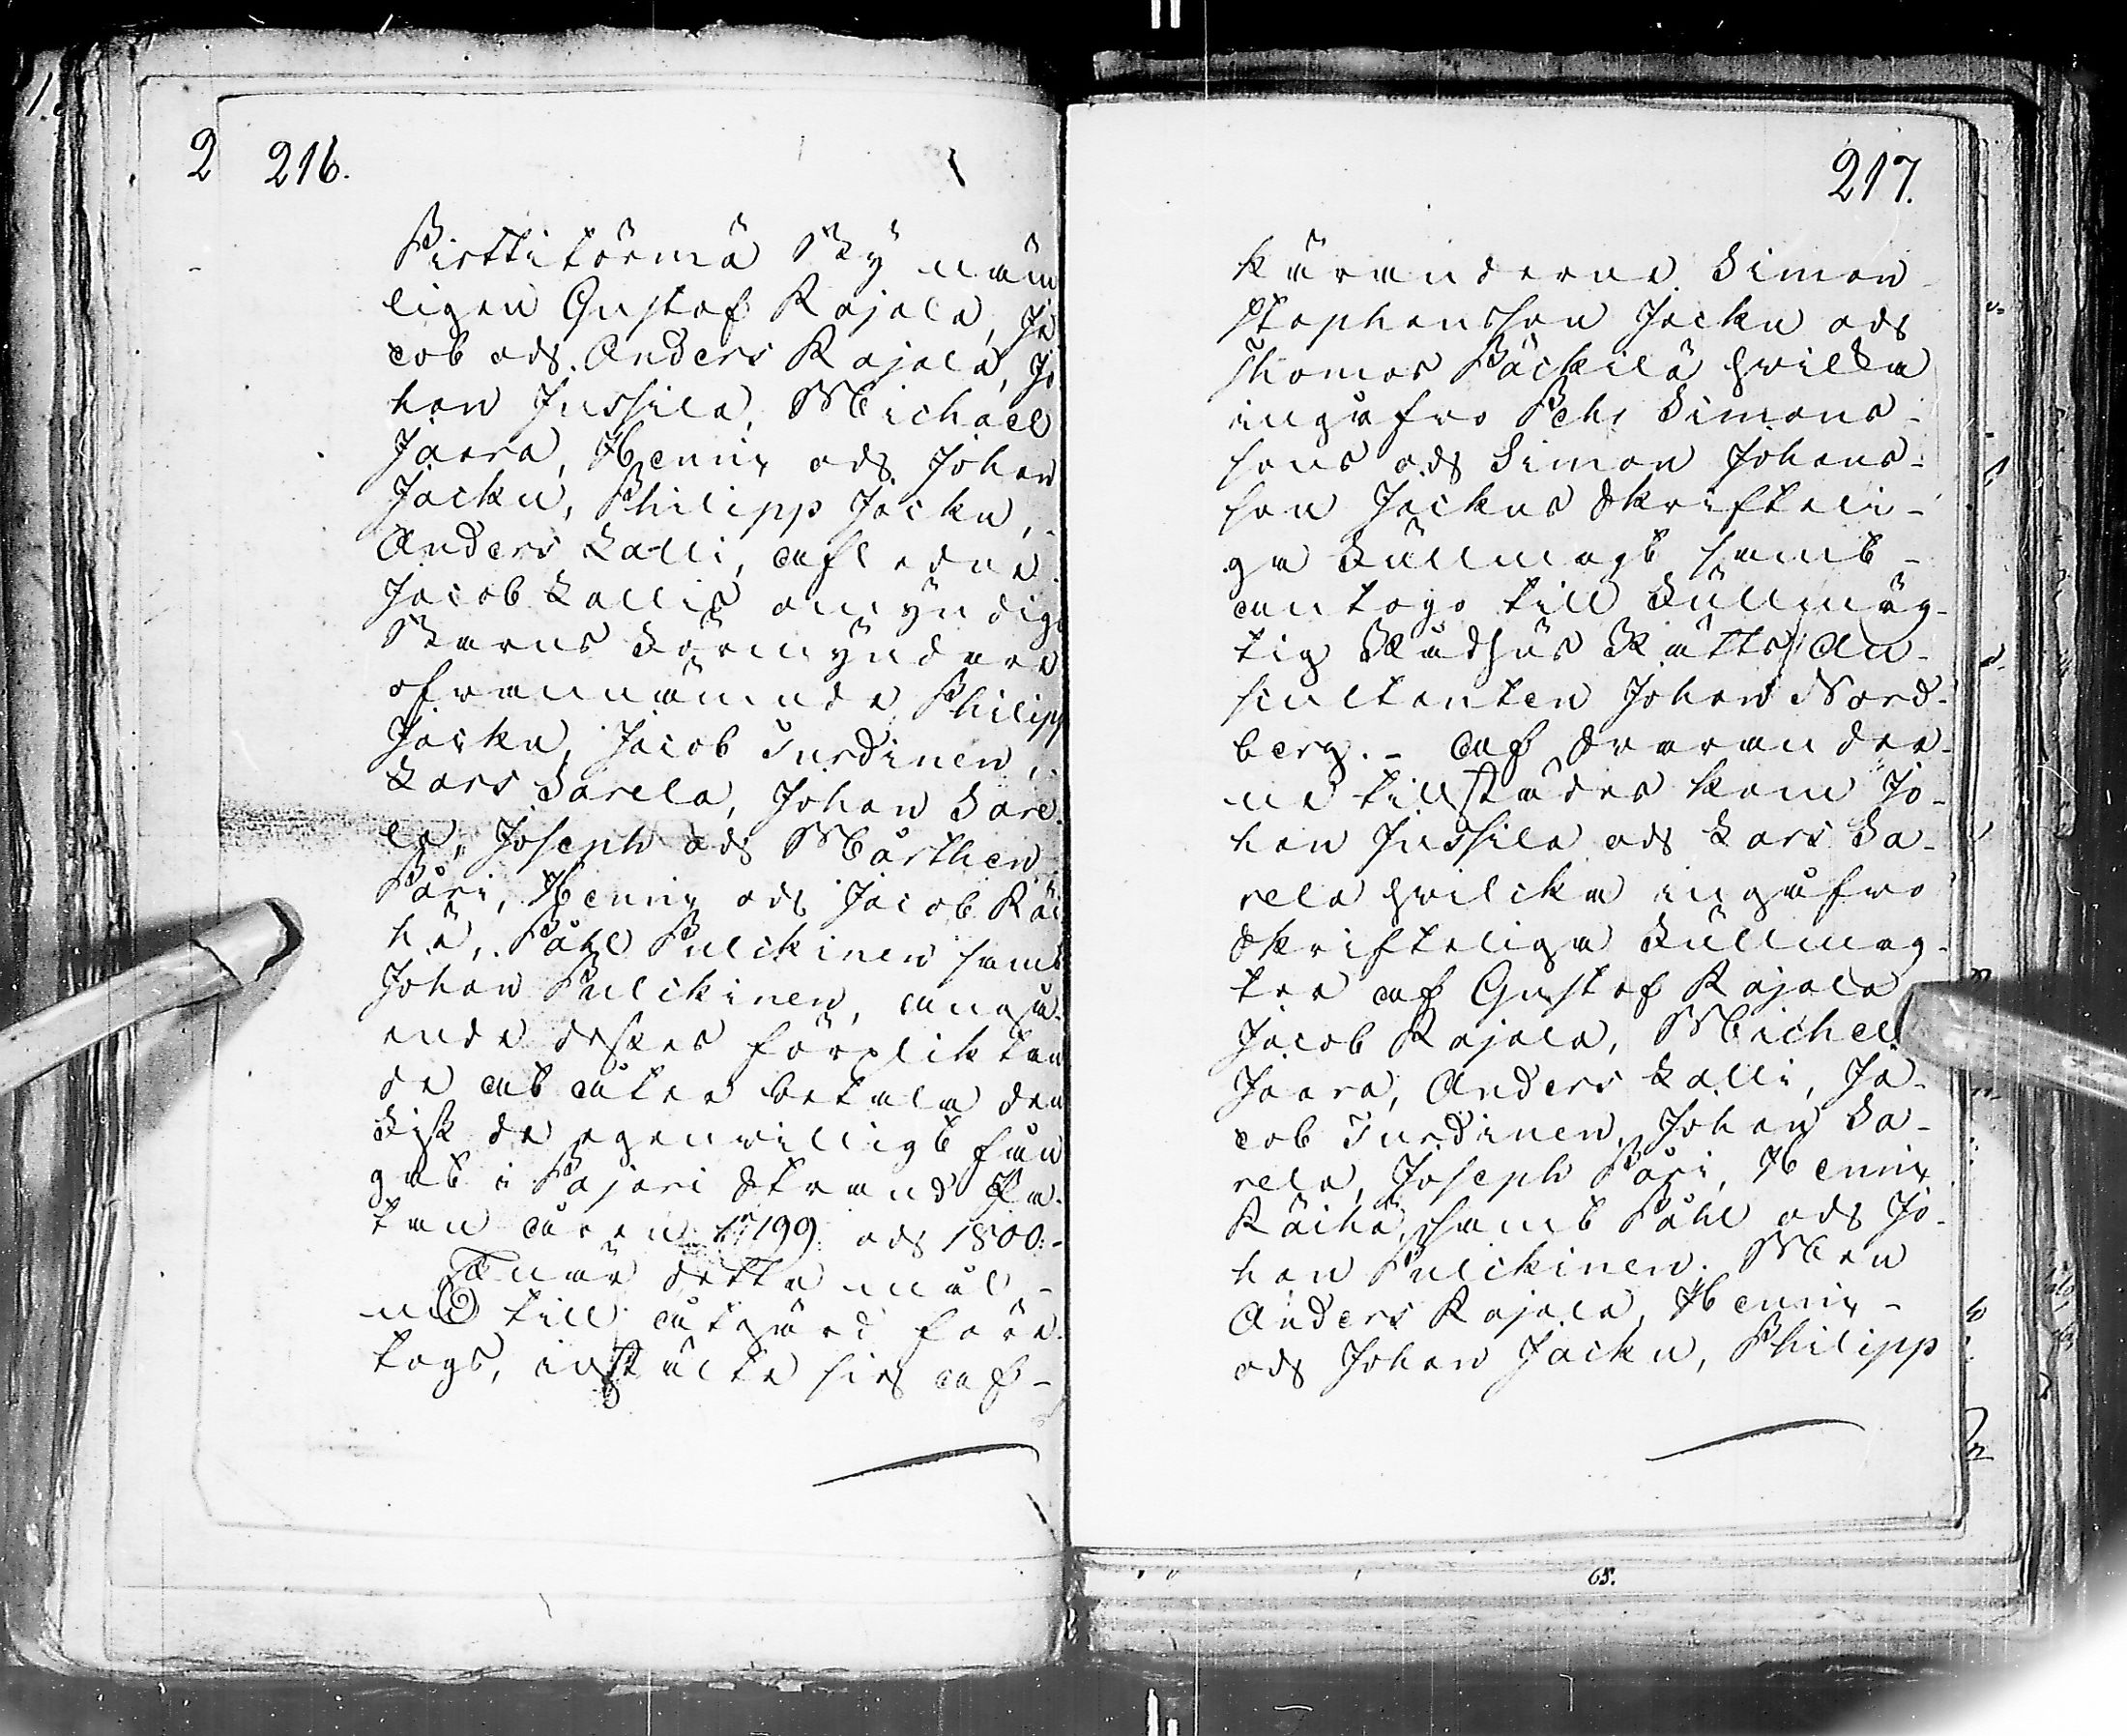 2 216.
Pirttitörmä By näm
ligen Gustaf Rajala, Ja
cob och Anders Rajala, Jo
han Jussila, Michael
Jaara, Hennix och Johan
Jacku, Philipp Jacku,
Anders Lalli, afledne
Jacob Lallis omyndiga
Barns Förmyndare
ofvannämnde Philipp
Jacku, Jacob Turdinen,
Lars Sarela, Johan Sare
la, Joseph och Mårthen
Päri, Hennix och Jacob Räi
hä, Påhl Pulckinen samt
Johan Pulckinen, angå
ende deras förplicktan
de at åter betala den
Fisk de egenwilligt fån
gat i Pajari Strand Pa
tan åren 1799 och 1800.-
När detta mål -
nu till åtgärd före
togs, instälte sig af -
217.
käranderne Simon
Stephansson Jacku och
Thomas Päckilä hvilka
ingåfvo Pehr Simons-
sons och Simon Johans-
son Jackus skrifteli-
ga Fullmagt samt -
antogo till Fullmäg-
tig Rådhus Rätts Au-
scultanten Johan Nord-
berg. - Af Svarander-
ne tillstädes kom Jo-
han Jussila och Lars Sa-
rela hvilcka ingåfvo
skrifteliga Fullmag-
ter af Gustaf Rajala
Jacob Rajala, Michel
Jaara, Anders Lalli, Ja-
cob Turdinen, Johan Sa-
rela, Joseph Päri, Hennix
Räihä, samt Påhl och Jo-
han Pulckinen. Men
Anders Rajala, Hennix -
och Johan Jacku, Philipp
68.